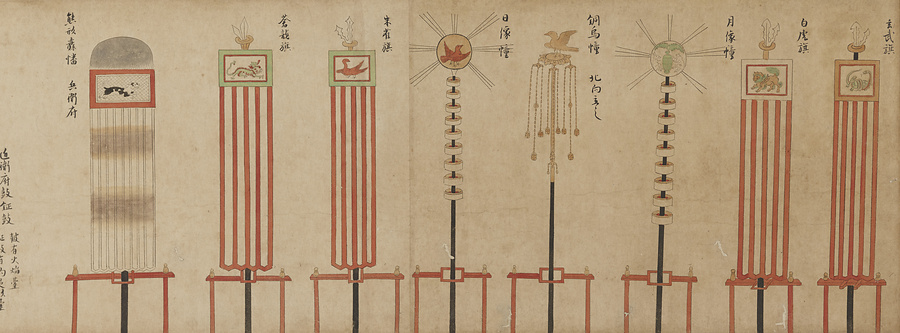 玄武旗
白虎旗
月像幢
銅烏幢 北向立之
日像幢
朱雀旗
蒼龍旗
兵衛府
近衛府鼓鉦鼓
鼓有火焔臺